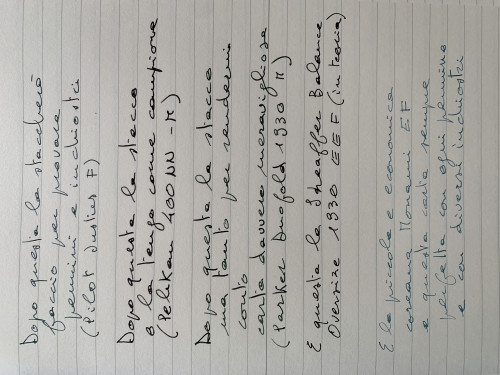 Dopo questa la staccherò
faccio per provare
pennini e inchiostri
(Pilot Justus F)
Dopo questa la stacco
o la tengo come campione
(Pelikan 400NN - M)
Dopo questa la stacco
ma tanto per rendermi
conto
carta davvero meravigliosa
(Parker Duofold 1930 M)
E questa la Sheaffer Balance
Oversize 1930 EEF (in teoria)
E la piccola e economica
coreana Monami EF
e questa carta sempre
perfetta con ogni pennino
e con diversi inchiostri